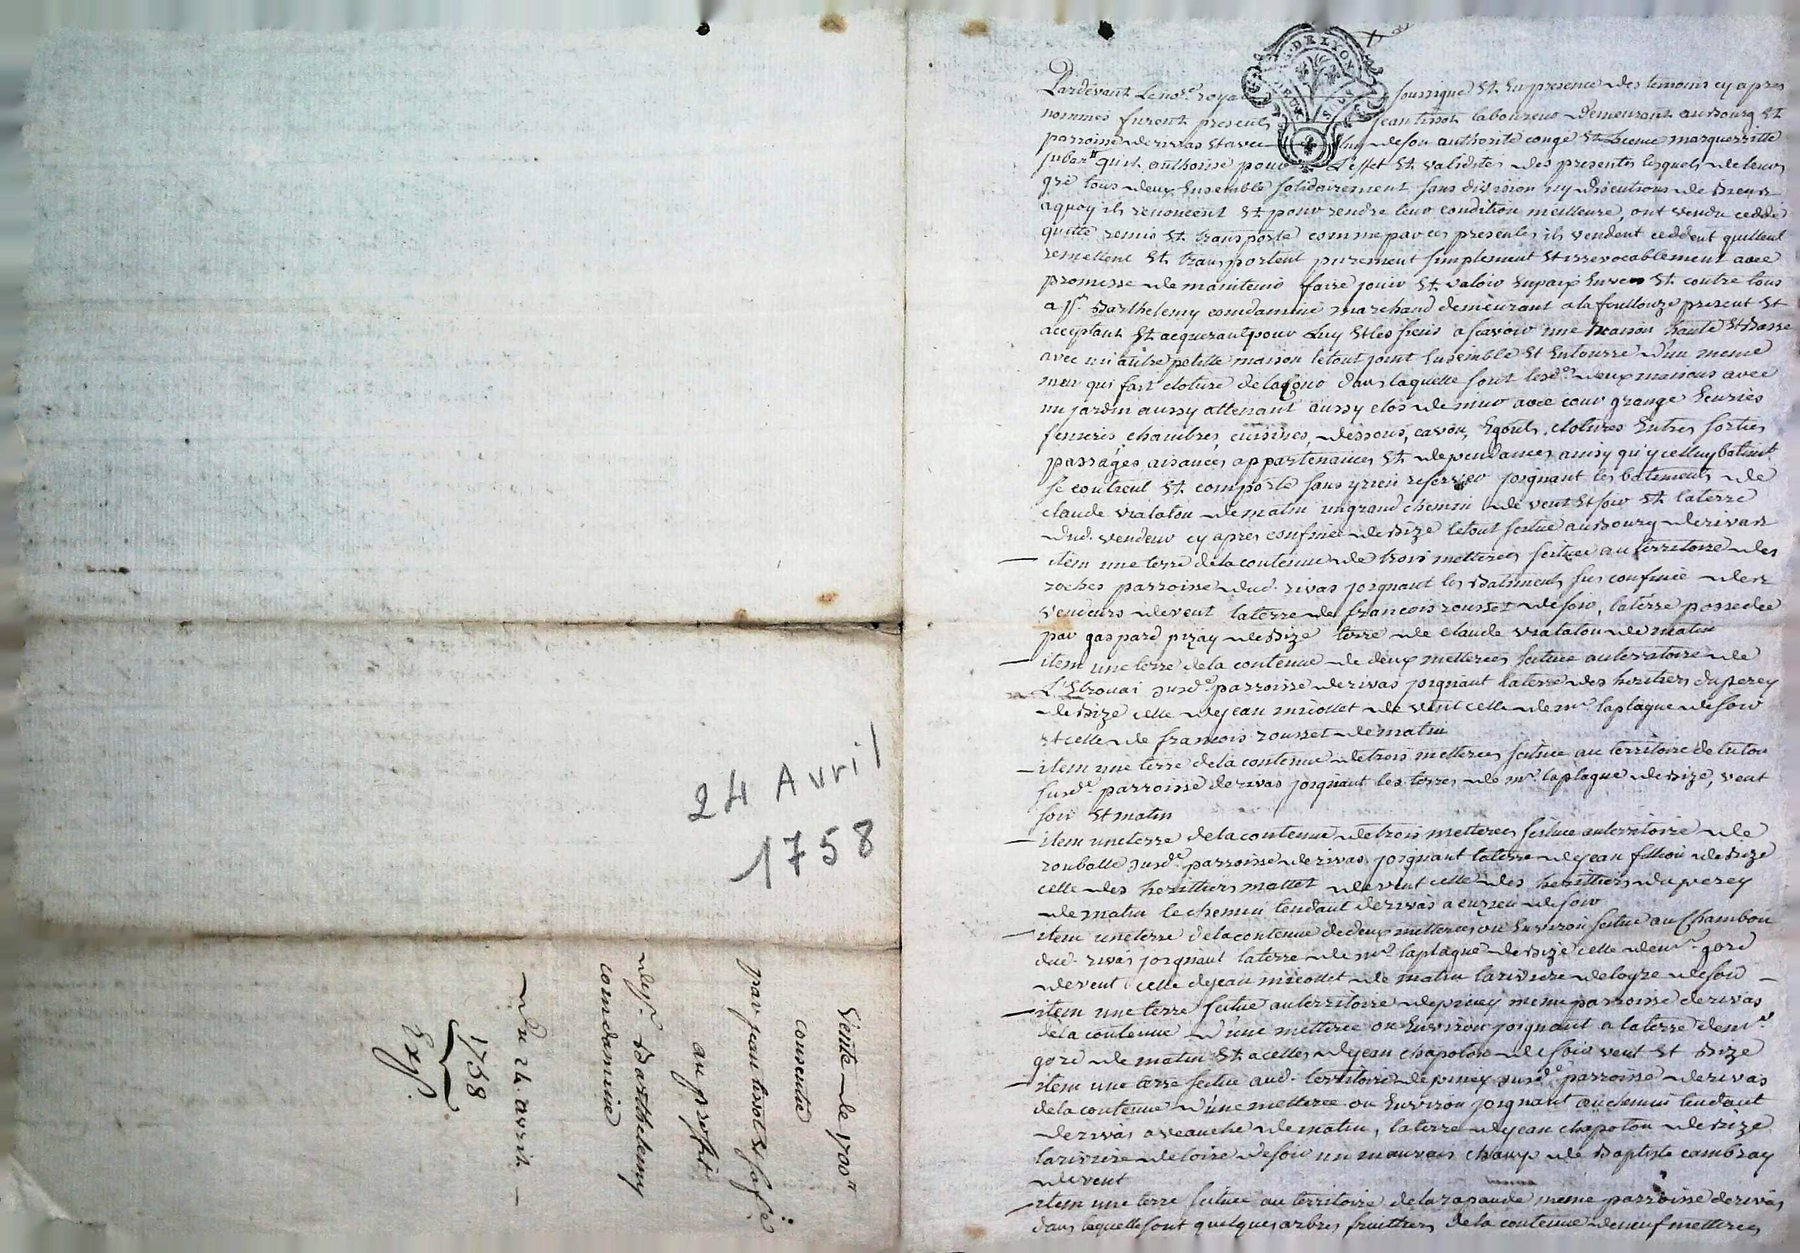 24 Avril
1758
Vente de 1700ᵗᵗ
consentie
par jean tissot & sa fe
au profit
de sr. Barthelemy
condamine
Du 24. avril
1758
Expj.
DE LYON
Pardevant Le nore. royal soussigné Et En presence des temoins cy apres
nommés furent presents jean tissot laboureur demeurant au bourg Et
parroisse de rivas Et avec luy de son authorité congé Et licence marguerritte
jubantt qu'il authorise pour L'effet Et validités des presentes lesquels de leur
gré tous deux Ensemble solidairement sans division ny discutions de biens
aquoy ils renoncent Et pour rendre leur condition meilleure, ont vendu ceddé
quitté remis Et transporté comme par ces presentes ils vendent ceddent quittent
remettent Et transportent purement simplement Et irrevocablement avec
promesse de maintenir faire jouir Et valoir En paix Envers Et contre tous
a sr. Barthelemy condamine marchand demeurant a la fouillouze present Et
acceptant Et acquerant pour Luy Et les siens a scavoir une maison haute Et Basse
avec un autre petitte maison le tout joint Ensemble Et Entourré d'un meme
mur qui fait cloture de la Cour dans laquelle sont lesd. deux maisons avec
un jardin aussy attenant aussy clos de mur avec cour grange Ecuries
fenieris chambres cuisines, dessous, cavon, Egouts, clotures Entres sorties
passages aisances appartenances Et dependances ainsy qu'ycelluy batiment
se contient Et comporte sans y rien reserver joignant les batiments de
claude viatalou de matin un grand chemin de vent Et soir Et la terre
dud. vendeur cy apres confinée de Bize le tout scitué au Bourg de rivas
— item une terre de la contenue de trois metterées scituée au territoire des
roches parroisse dud. rivas joignant les Batiments sus confinés des
vendeurs de vent la terre de françois rousset de soir, la terre possedée
par gaspard pizay de Bize terre de claude viatalou de matin
— item une terre de la contenue de deux metterées scituée au territoire de
L'Etrouai susde. parroisse de rivas joignant la terre des heritiers duperey
de Bize celle de jean micollet de vent celle de mr. laplaque de soir
Et celle de francois rousset de matin
— item une terre de la contenue de trois metterées scituée au territoire de tutou
susde. parroisse de rivas joignant les terres de mr. laplaque de Bize, vent
soir Et matin
— item une terre de la contenue de trois metterées scituée au territoire de
rouballe susde. parroisse de rivas joignant la terre de jean fillion de Bize
celle des heritiers mattet de vent celle des herittiers duperey
de matin le chemin tendant de rivas a cuzieu de soir
— item une terre de la contenue de deux metterées ou Environ scitué au Chambon
dud. rivas joignant la terre de mr. laplaque de Bize celle de mr. goré
de vent celle de jean micollet de matin la riviere de loyre de soir —
— item une terre scitué au territoire de piney meme parroisse de rivas
de la contenue d'une metterée ou Environ joignant a la terre de mr.
goré de matin Et a celles de jean chapoton de soir vent Et Bize
— item une terre scitué aud. territoire de piney susde. parroisse de rivas
de la contenue d'une metterée ou Environ joignant au chemin tendant
de rivas a veauche de matin, la terre de jean chapoton de Bize
la riviere de loire de soir un mauvais champ de Baptiste cambray
de vent
— item une terre scitué au territoire de la rapaude meme parroisse de rivas
dans laquelle sont quelques arbres fruittiers de la contenue de neuf metterées